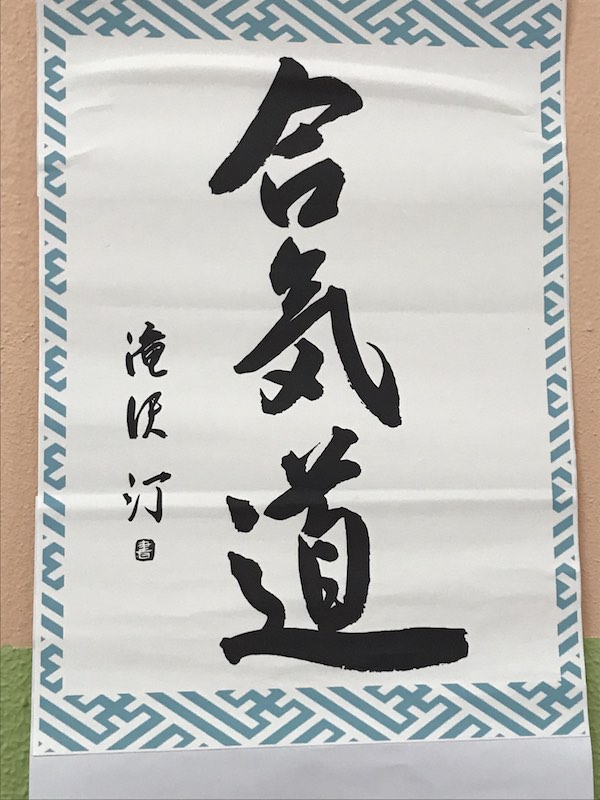 合気道
滝沢 汀
書